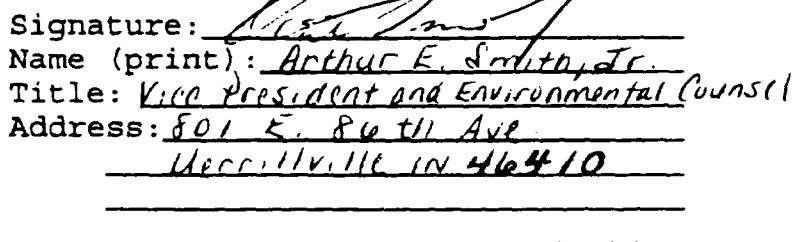 Signature:
Name (print): Arthur E. Smith, Jr.
Title: Vice President and Environmental Counsel
Address: 801 E. 86th Ave
Merrillville IN 46410